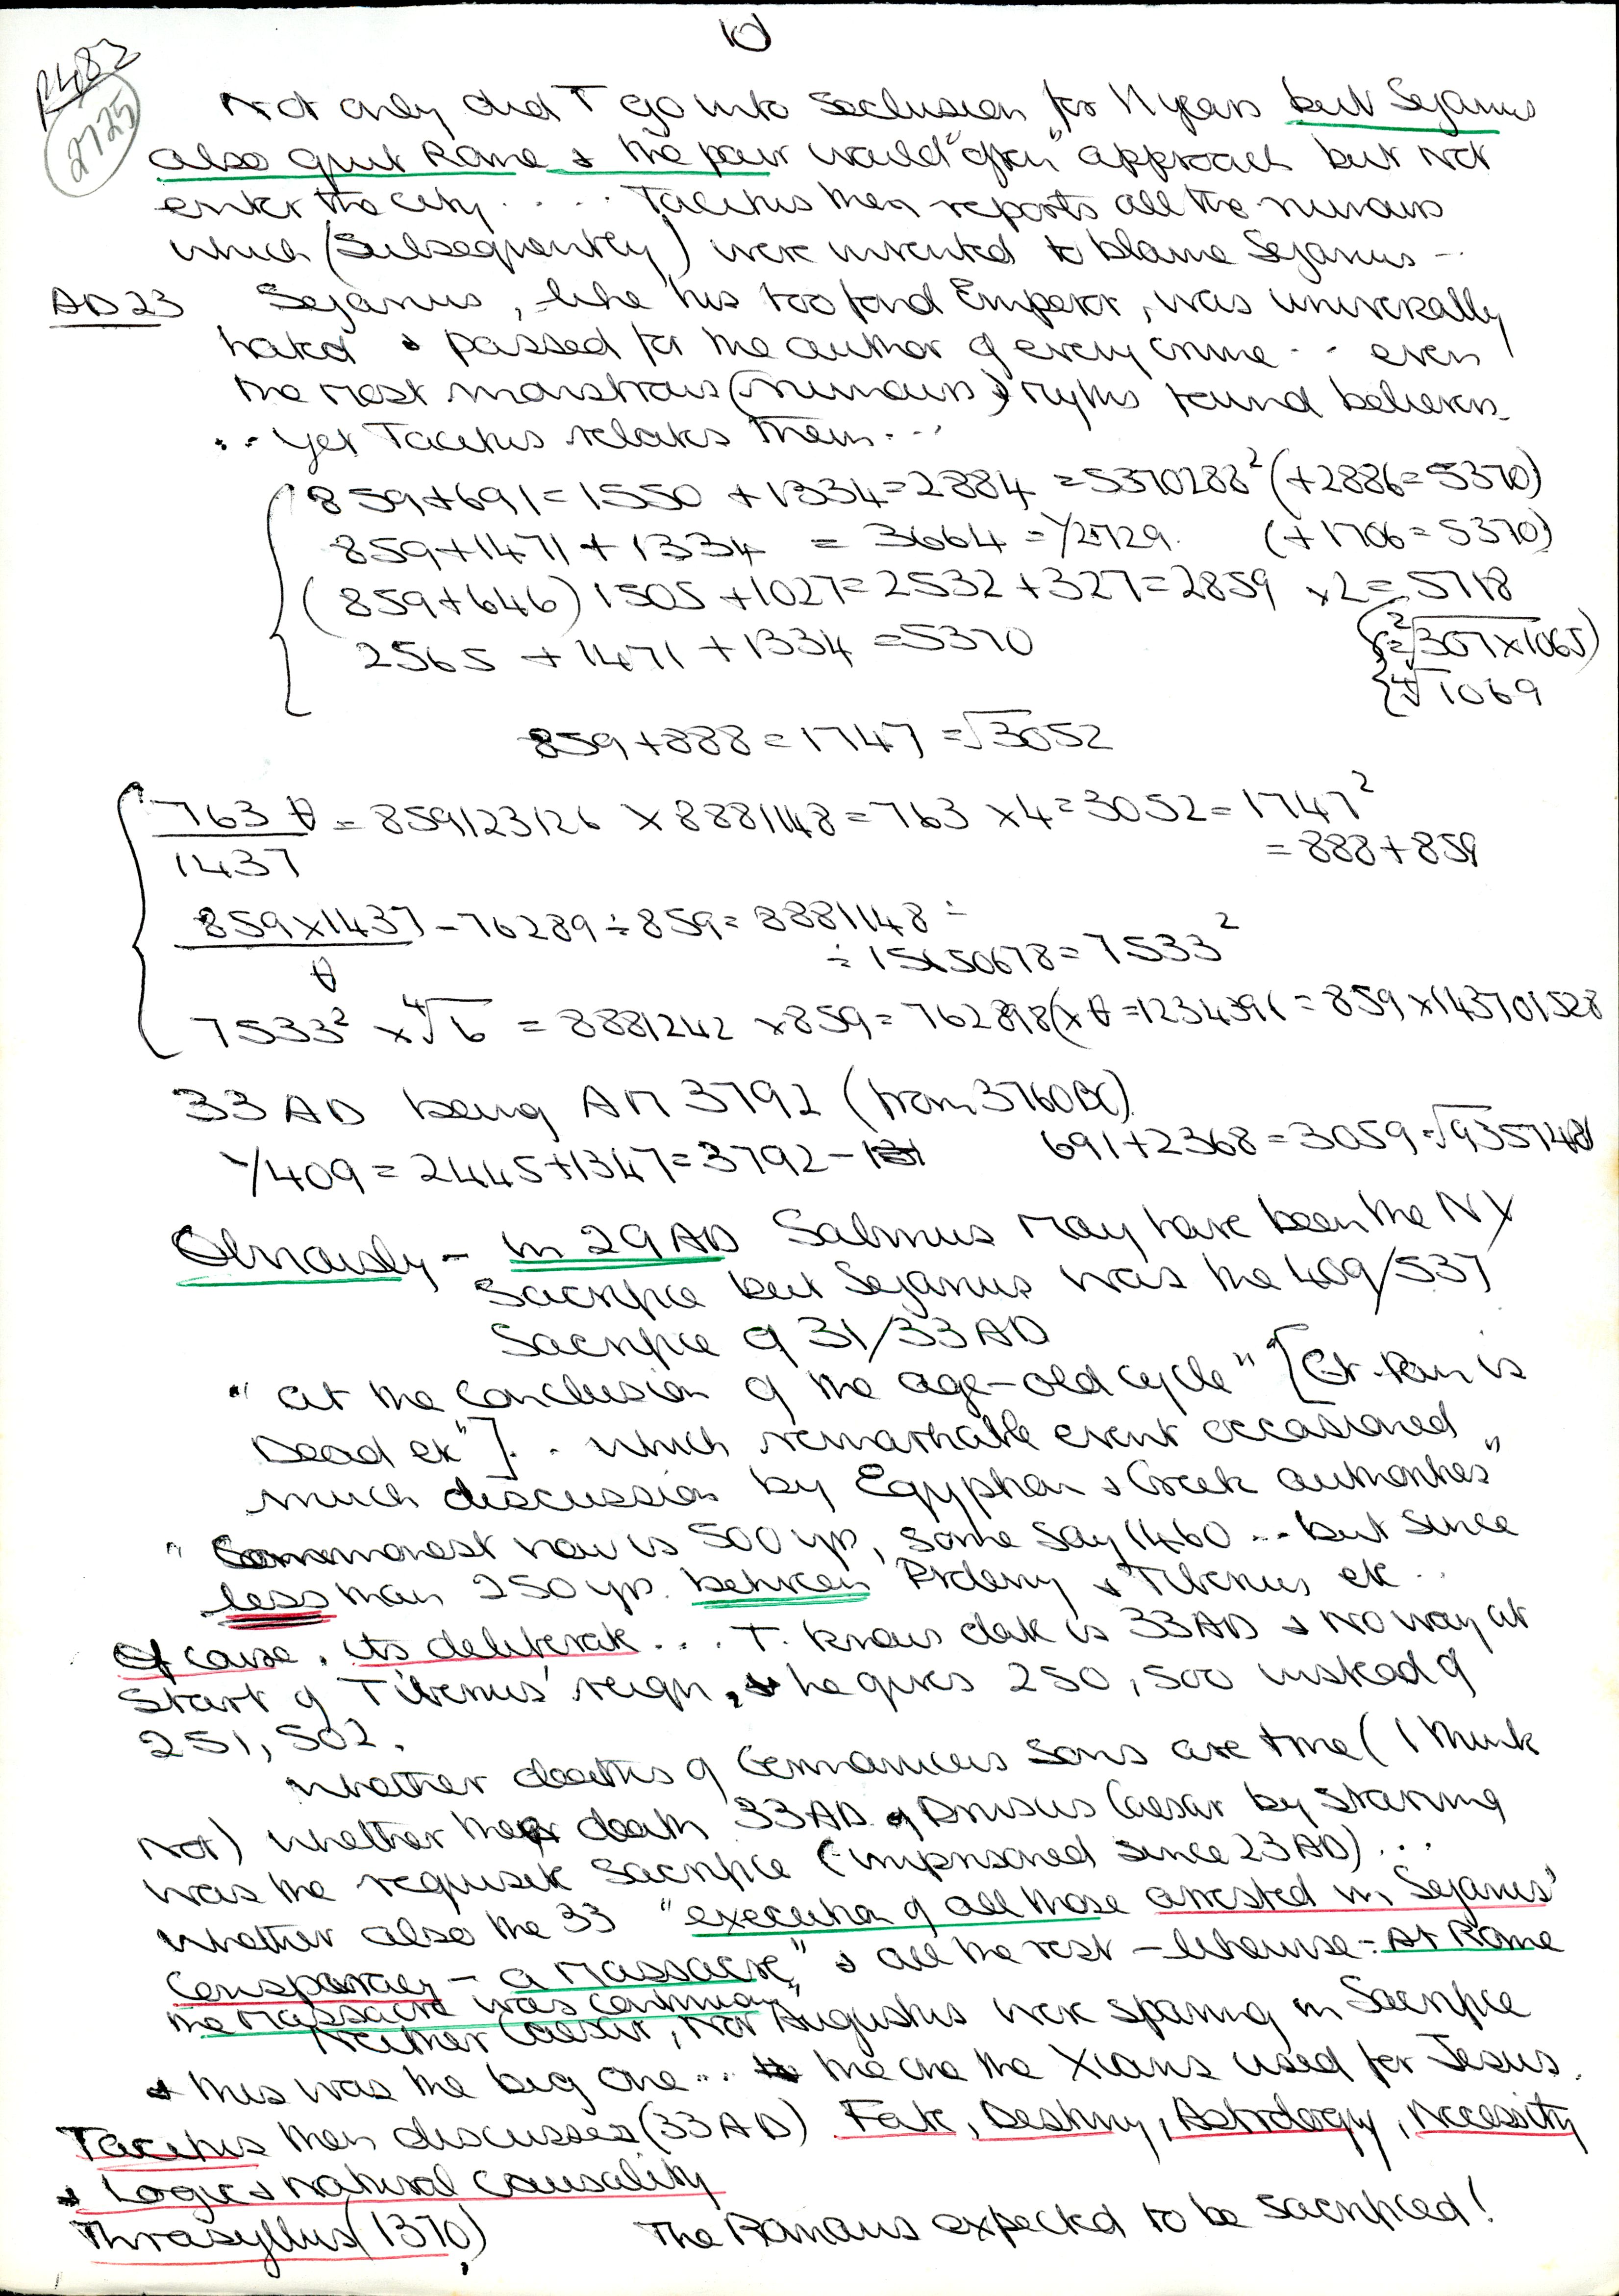 10
R482
2725
Not only did T go into seclusion for 11 years but Sejanus
also quit Rome & the pair would "often" approach but not
enter the city ..... Tacitus then reports all the rumours
which (subsequently) were invented to blame Sejanus --
AD 23 Sejanus, like his too fond Emperor, was universally
hated & passed for the author of every crime -- even
the most monstrous (rumours) & myths found believers.
.. Yet Tacitus relates them...
859+691=1550 +1334=2884 =5370288² (+2886=5370)
859+1471+1334 = 3664 = 729. (+1706=5370)
(859+646) 1505 +1027=2532 +327=2859 ×2=5718
2565 +1471 +1334 =5370
307×1065)
1069
859+888=1747 =√3052
763 θ = 859123126 ×8881148=763 ×4=3052=1747²
1437
= 888+859
859×1437 - 76289÷859= 8881148 ÷
θ
÷ 15650678=7533²
7533² ×⁴√6 = 8881242 ×859= 762898(×θ=1234391=859×143701528
33 AD being AM 3792 (from 3760BC)
Y/409=2445+1347=3792-
691+2368=3059=√935748
Obviously - in 29 AD Sabinus may have been the NY
Sacrifice but Sejanus was the 409/537
Sacrifice of 31/33 AD
"at the conclusion of the age-old cycle" ["Gt. Pan is
Dead etc"].. which remarkable event occasioned
much discussion by Egyptian & Greek authorities"
"Commonest now is 500 yrs, some say 1460 ... but since
less than 250 yrs. between Ptolemy & Tiberius etc ..
Of course, its deliberate... T. knows date is 33AD & no way at
Start of Tiberius' reign, & he gives 250, 500 instead of
251, 502.
Whether deaths of Germanicus sons are true (I think
Not) whether the death 33AD of Drusus Caesar by starving
was the requisite sacrifice (imprisoned since 23AD)...
whether also the 33 "execution of all those arrested in Sejanus'
Conspiracy - a Massacre," & all the rest - likewise - At Rome
the Massacre was continuous"
Neither Caesar, nor Augustus were sparing in Sacrifice
& this was the big one... the one the Xians used for Jesus.
Tacitus then discusses (33AD) Fate, Destiny, Astrology, Necessity
& Logic & natural causality
Thrasyllus (1370) The Romans expected to be sacrificed!